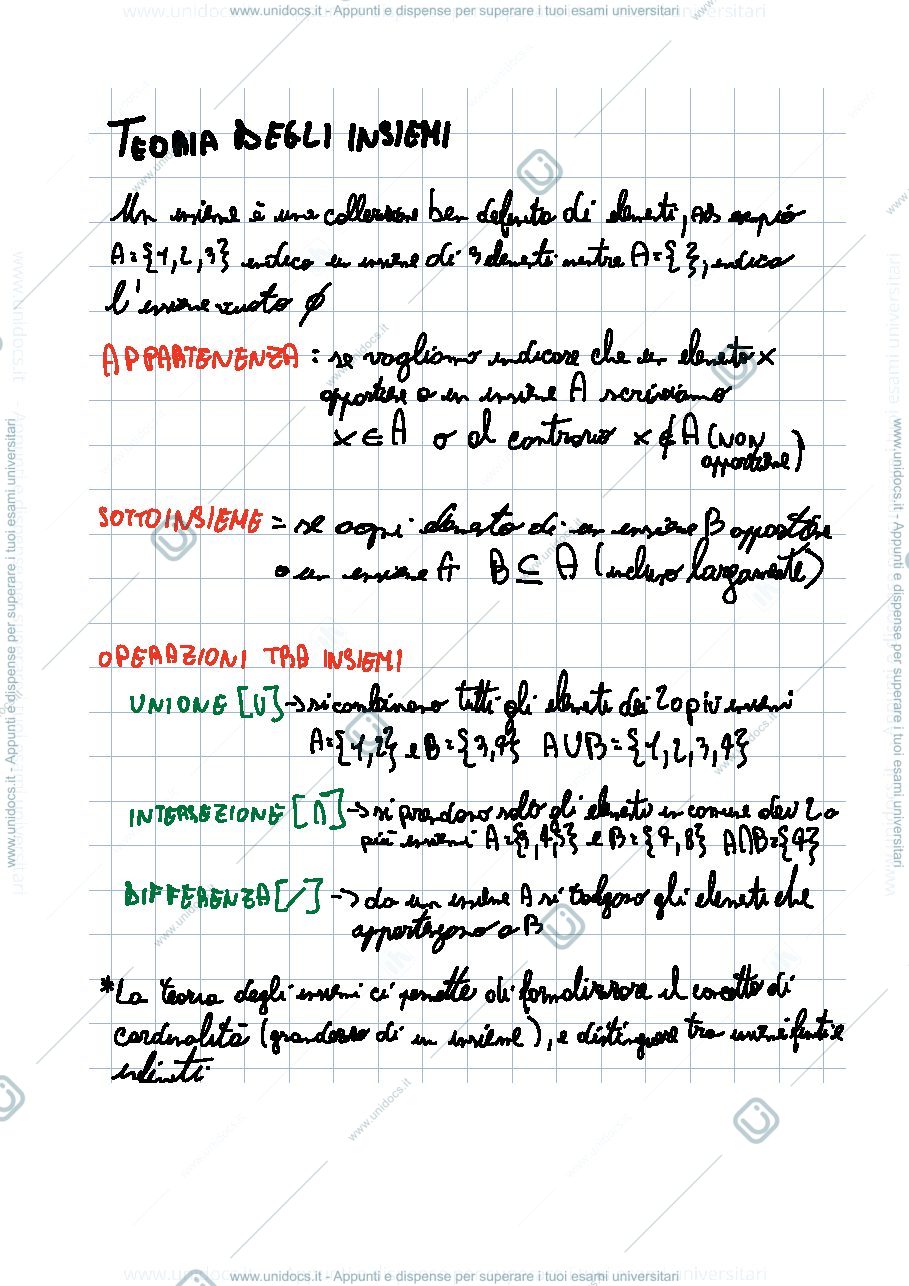 www.unidocs.it - Appunti e dispense per superare i tuoi esami universitari
TEORIA DEGLI INSIEMI
Un insieme è una collezione ben definita di elementi, ad esempio
A={1,2,3} indico un insieme di 3 elementi mentre A={ }, indica
l'insieme vuoto ∅
APPARTENENZA : se vogliamo indicare che un elemento x
appartiene a un insieme A scriviamo
x ∈ A o al contrario x ∉ A (NON
appartiene)
SOTTOINSIEME = se ogni elemento di un insieme B appartiene
a un insieme A B ⊆ A (incluso largamente)
OPERAZIONI TRA INSIEMI
UNIONE [U] → si combinano tutti gli elementi dei 2 o più insiemi
A={1,2} e B={3,4} A∪B={1,2,3,4}
INTERSEZIONE [∩] → si prendono solo gli elementi in comune dei 2 o
più insiemi e B={4,8} A∩B={4}
DIFFERENZA [/] → da un insieme A si tolgono gli elementi che
appartengono a B
*La teoria degli insiemi ci permette di formalizzare il concetto di
cardinalità (grandezza di un insieme), e distinguere tra insiemi finiti e
infiniti
www.unidocs.it - Appunti e dispense per superare i tuoi esami universitari
www.unidocs.it - Appunti e dispense per superare i tuoi esami universitari
www.unidocs.it - Appunti e dispense per superare i tuoi esami universitari